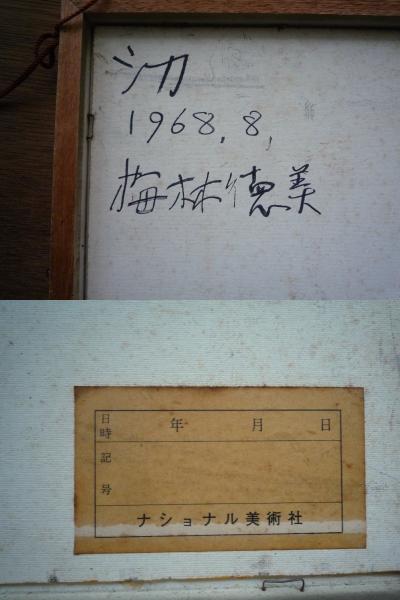 シカ
1968.8,
梅林徳美
日時 年 月 日
記号
ナショナル美術社